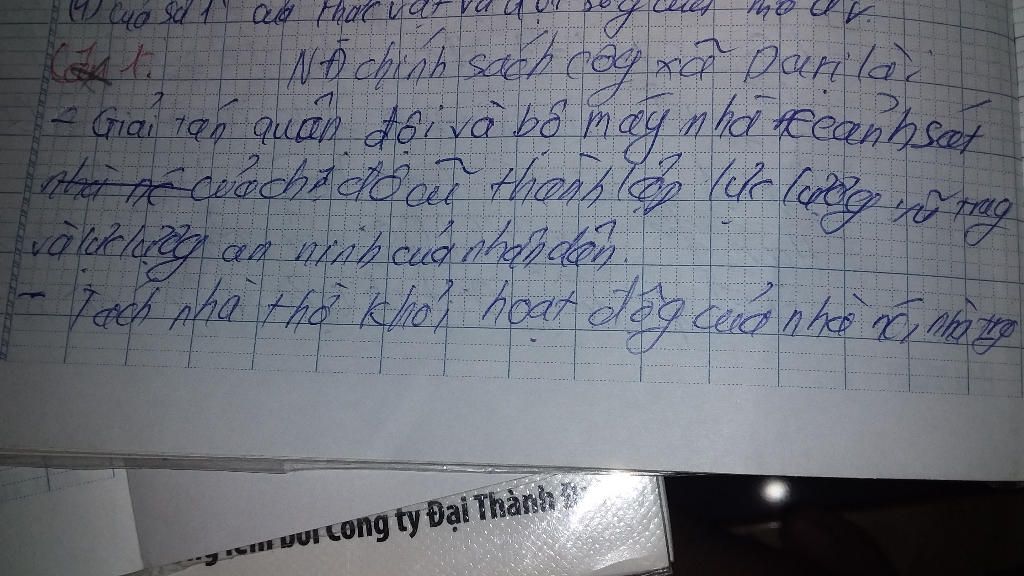 (4) của sử 1 của thác vật và đời sống của
Câu 1. NĐ chính sách côg xã Pari là:
- Giải tán quân đội và bộ máy nhà cảnh sát
của chế độ cũ thành lập lực lượng vũ trag
và lực lượng an ninh của nhân dân.
- Tách nhà thờ khỏi hoạt độg của nhà nc, nhà trg
Công ty Đại Thành